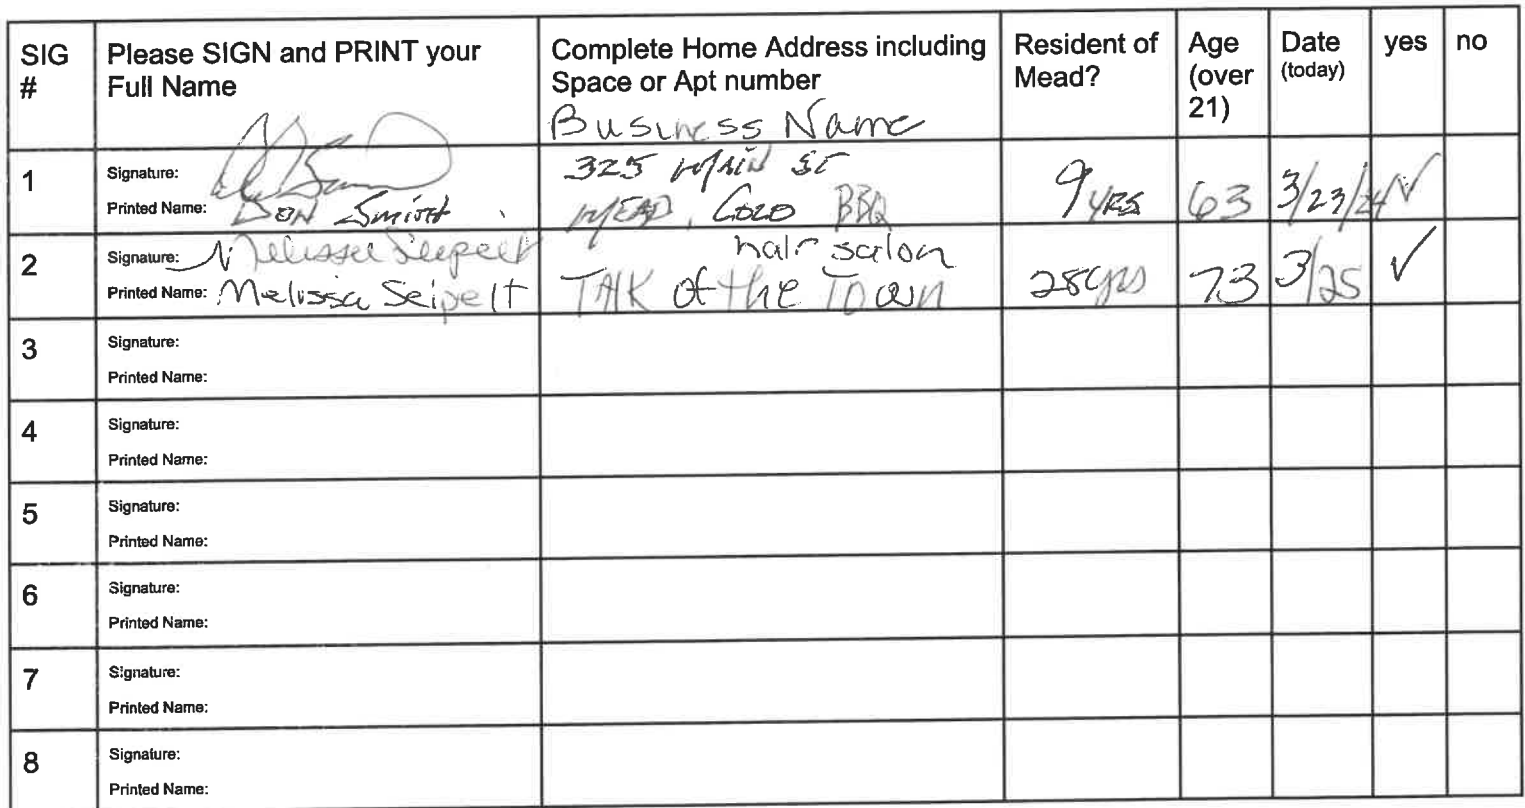 SIG # Please SIGN and PRINT your Full Name Complete Home Address including Space or Apt number Resident of Mead? Age (over 21) Date (today) yes no
Business Name
1 Signature: 325 MAIN ST
Printed Name: Don Smith MEAD, COLO BBQ 9 YRS 63 3/23/24 ✓
2 Signature: Melissa Seipelt hair salon
Printed Name: Melissa Seipelt TAlK of the Town 28yrs 73 3/25 ✓
3 Signature:
Printed Name:
4 Signature:
Printed Name:
5 Signature:
Printed Name:
6 Signature:
Printed Name:
7 Signature:
Printed Name:
8 Signature:
Printed Name: